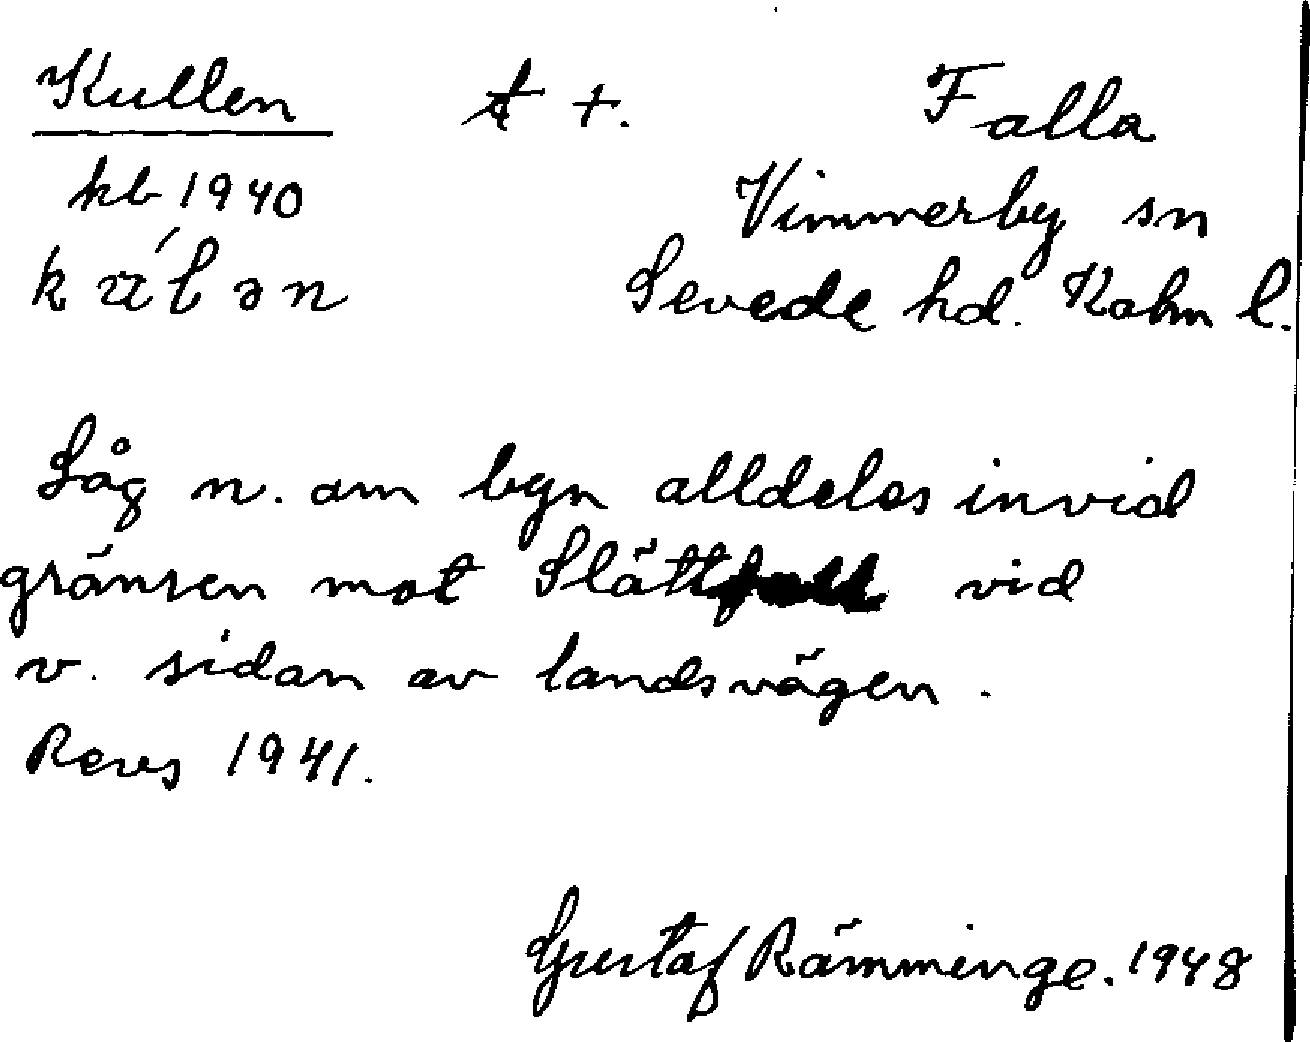 Kullen t +. Falla
kb 1940 Vimmerby sn
kúlən Sevede hd. Kalm l.
Låg n. om byn alldeles invid
gränsen mot Slättfall vid
v. sidan av landsvägen.
Revs 1941.
Gustaf Rämminge. 1948